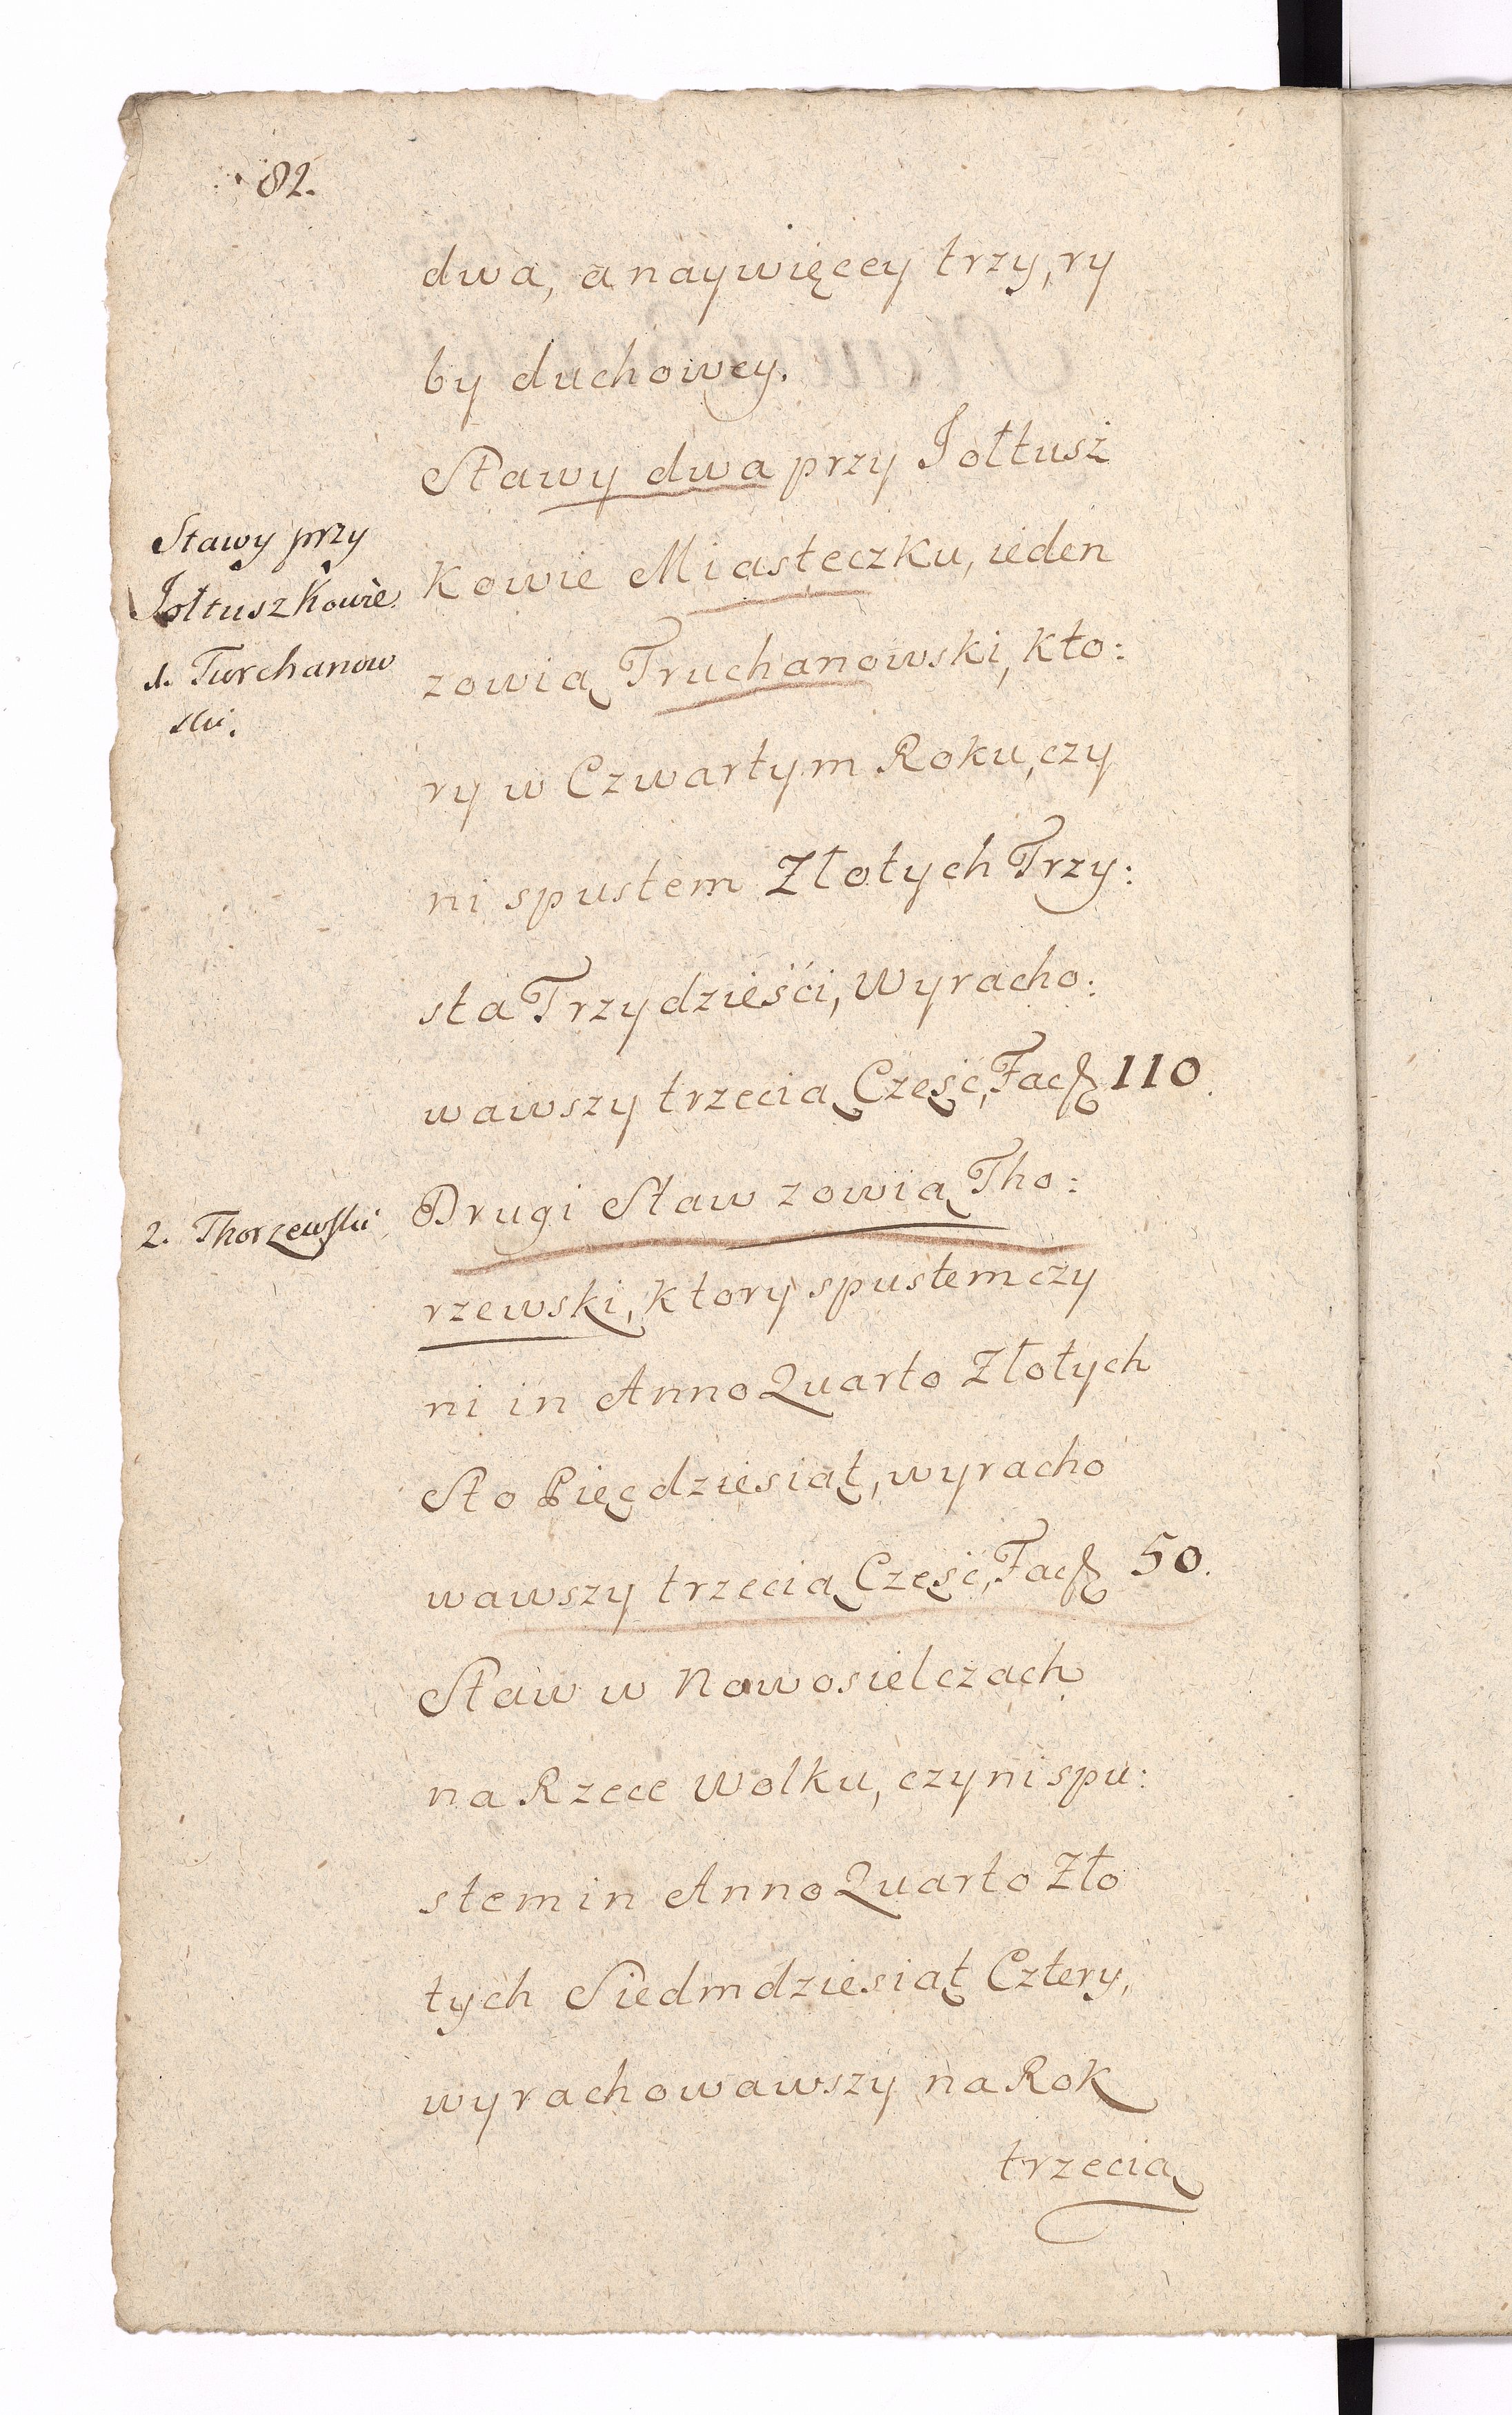 82.
dwa, a naywięcey trzy, ry
by duchowey.
Stawy dwa przy Jołtusz
Stawy przy
Jołtuszkowie
kowie Miasteczku, ieden
1. Turchanow
ski.
zowią Truchanowski, kto:
ry w Czwartym Roku, czy
ni spustem Złotych Trzy:
sta Trzydzieści, Wyracho:
wawszy trzecią Częsć, Fac 110.
2. Thorzewski
Drugi Staw zowią Tho:
rzewski, ktory spustem czy
ni in Anno Quarto Złotych
Sto Pięcdziesiąt, wyracho
wawszy trzecią Częsć, Fac 50.
Staw w Nowosielczach
na Rzece Wolku, czyni spu:
stem in Anno Quarto Zło
tych Siedmdziesiąt Cztery,
wyrachowawszy na Rok
trzecią